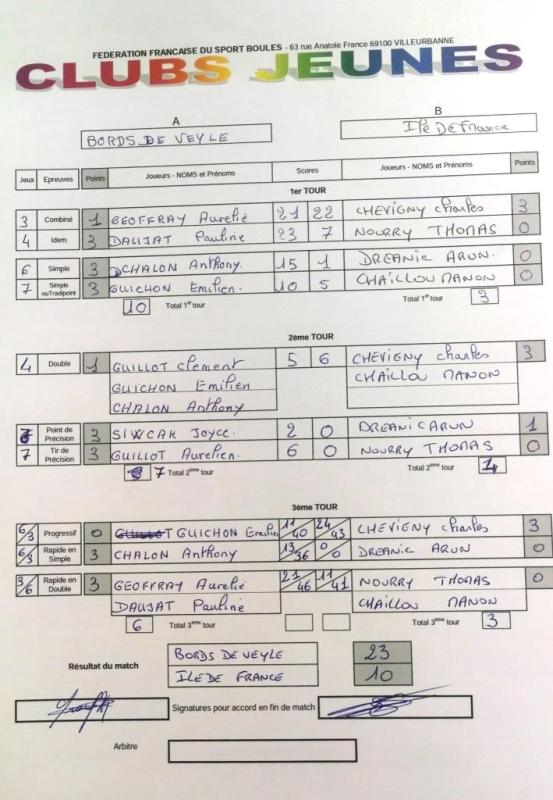 FEDERATION FRANCAISE DU SPORT BOULES - 63 rue Anatole France 69100 VILLEURBANNE
CLUBS JEUNES
A B
BORDS DE VEYLE Ile De France
Jeux Epreuves Points Joueurs - NOMS et Prénoms Scores Joueurs - NOMS et Prénoms Points
1er TOUR
3 Combiné 1 GEOFFRAY Aurelie 21 22 CHEVIGNY Charles 3
4 Idem 3 DAUJAT Pauline 23 7 NOURRY THOMAS 0
6 Simple 3 CHALON Anthony. 15 1 DREANIC ARUN. 0
7 Simple ouTradipoint 3 GUICHON Emilien. 10 5 CHAILLOU MANON 0
10 Total 1er tour Total 1er tour 3
2ème TOUR
4 Double 1 GUILLOT Clement 5 6 CHEVIGNY Charles 3
GUICHON Emilien CHAILLOU MANON
CHALON Anthony
Point de Précision 3 SIWCAK Joyce. 2 0 DREANIC ARUN 1
7 Tir de Précision 3 GUILLOT Aurelien. 6 0 NOURRY THOMAS 0
7 Total 2ème tour Total 2ème tour 4
3ème TOUR
6/3 Progressif 0 GUICHON Emilien 11/40 24/43 CHEVIGNY Charles 3
6/3 Rapide en Simple 3 CHALON Anthony 13/36 0/0 DREANIC ARUN 0
3/6 Rapide en Double 3 GEOFFRAY Aurelie 21/46 11/41 NOURRY THOMAS 0
DAUJAT Pauline CHAILLOU MANON
6 Total 3ème tour Total 3ème tour 3
Résultat du match BORDS DE VEYLE 23
ILE DE FRANCE 10
Signatures pour accord en fin de match
Arbitre